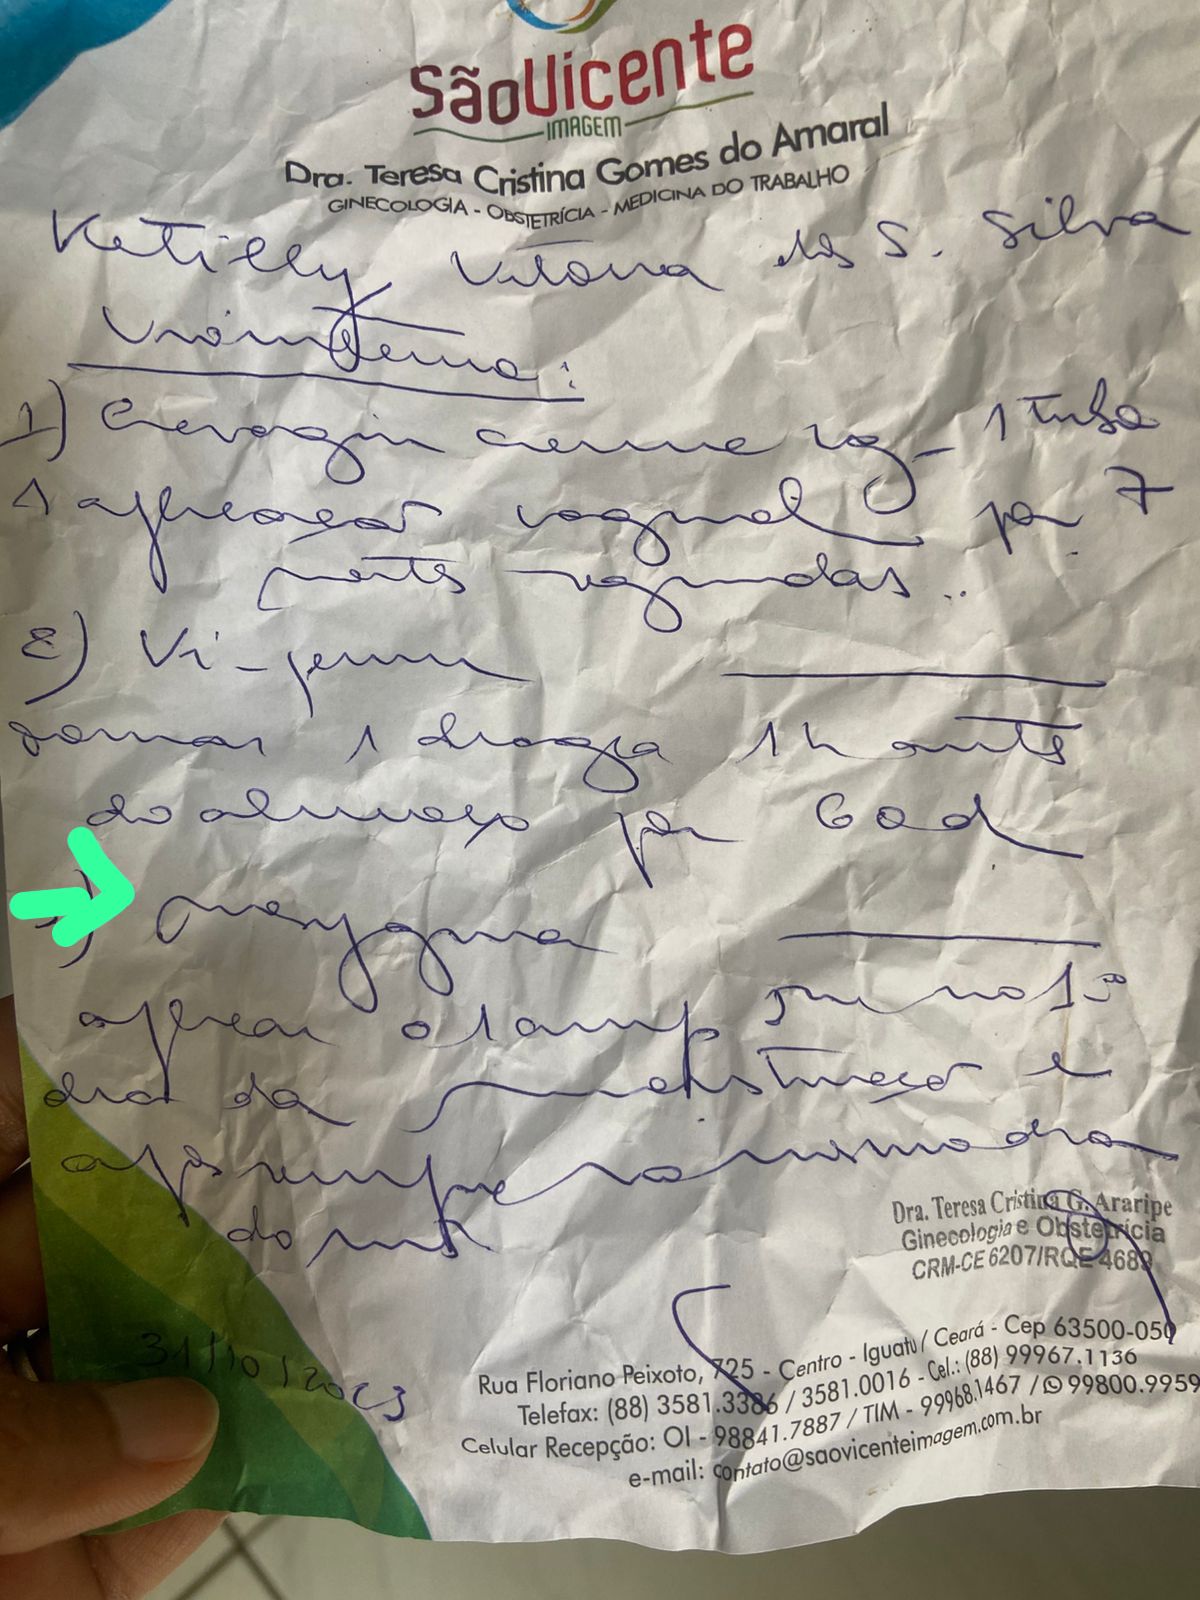 SãoVicente
IMAGEM
Dra. Teresa Cristina Gomes do Amaral
GINECOLOGIA - OBSTETRÍCIA - MEDICINA DO TRABALHO
Ketilly Vitória dos S. Silva
1) Crevagin creme vag - 1 tubo
1 aplicação vaginal por 7
noites seguidas..
2) Vi-ferrin
tomar 1 drágea 1h antes
do almoço por 60d
3) mesigyna
aplicar 01 amp IM no 1º
dia da menstruação e
após sempre no mesmo dia
do mês
Dra. Teresa Cristina G. Araripe
Ginecologia e Obstetrícia
CRM-CE 6207/RQE 4689
31/10/2023
Rua Floriano Peixoto, 725 - Centro - Iguatu / Ceará - Cep 63500-050
Telefax: (88) 3581.3386 / 3581.0016 - Cel.: (88) 99967.1136
Celular Recepção: OI - 98841.7887 / TIM - 99968.1467 / 99800.9959
e-mail: contato@saovicenteimagem.com.br